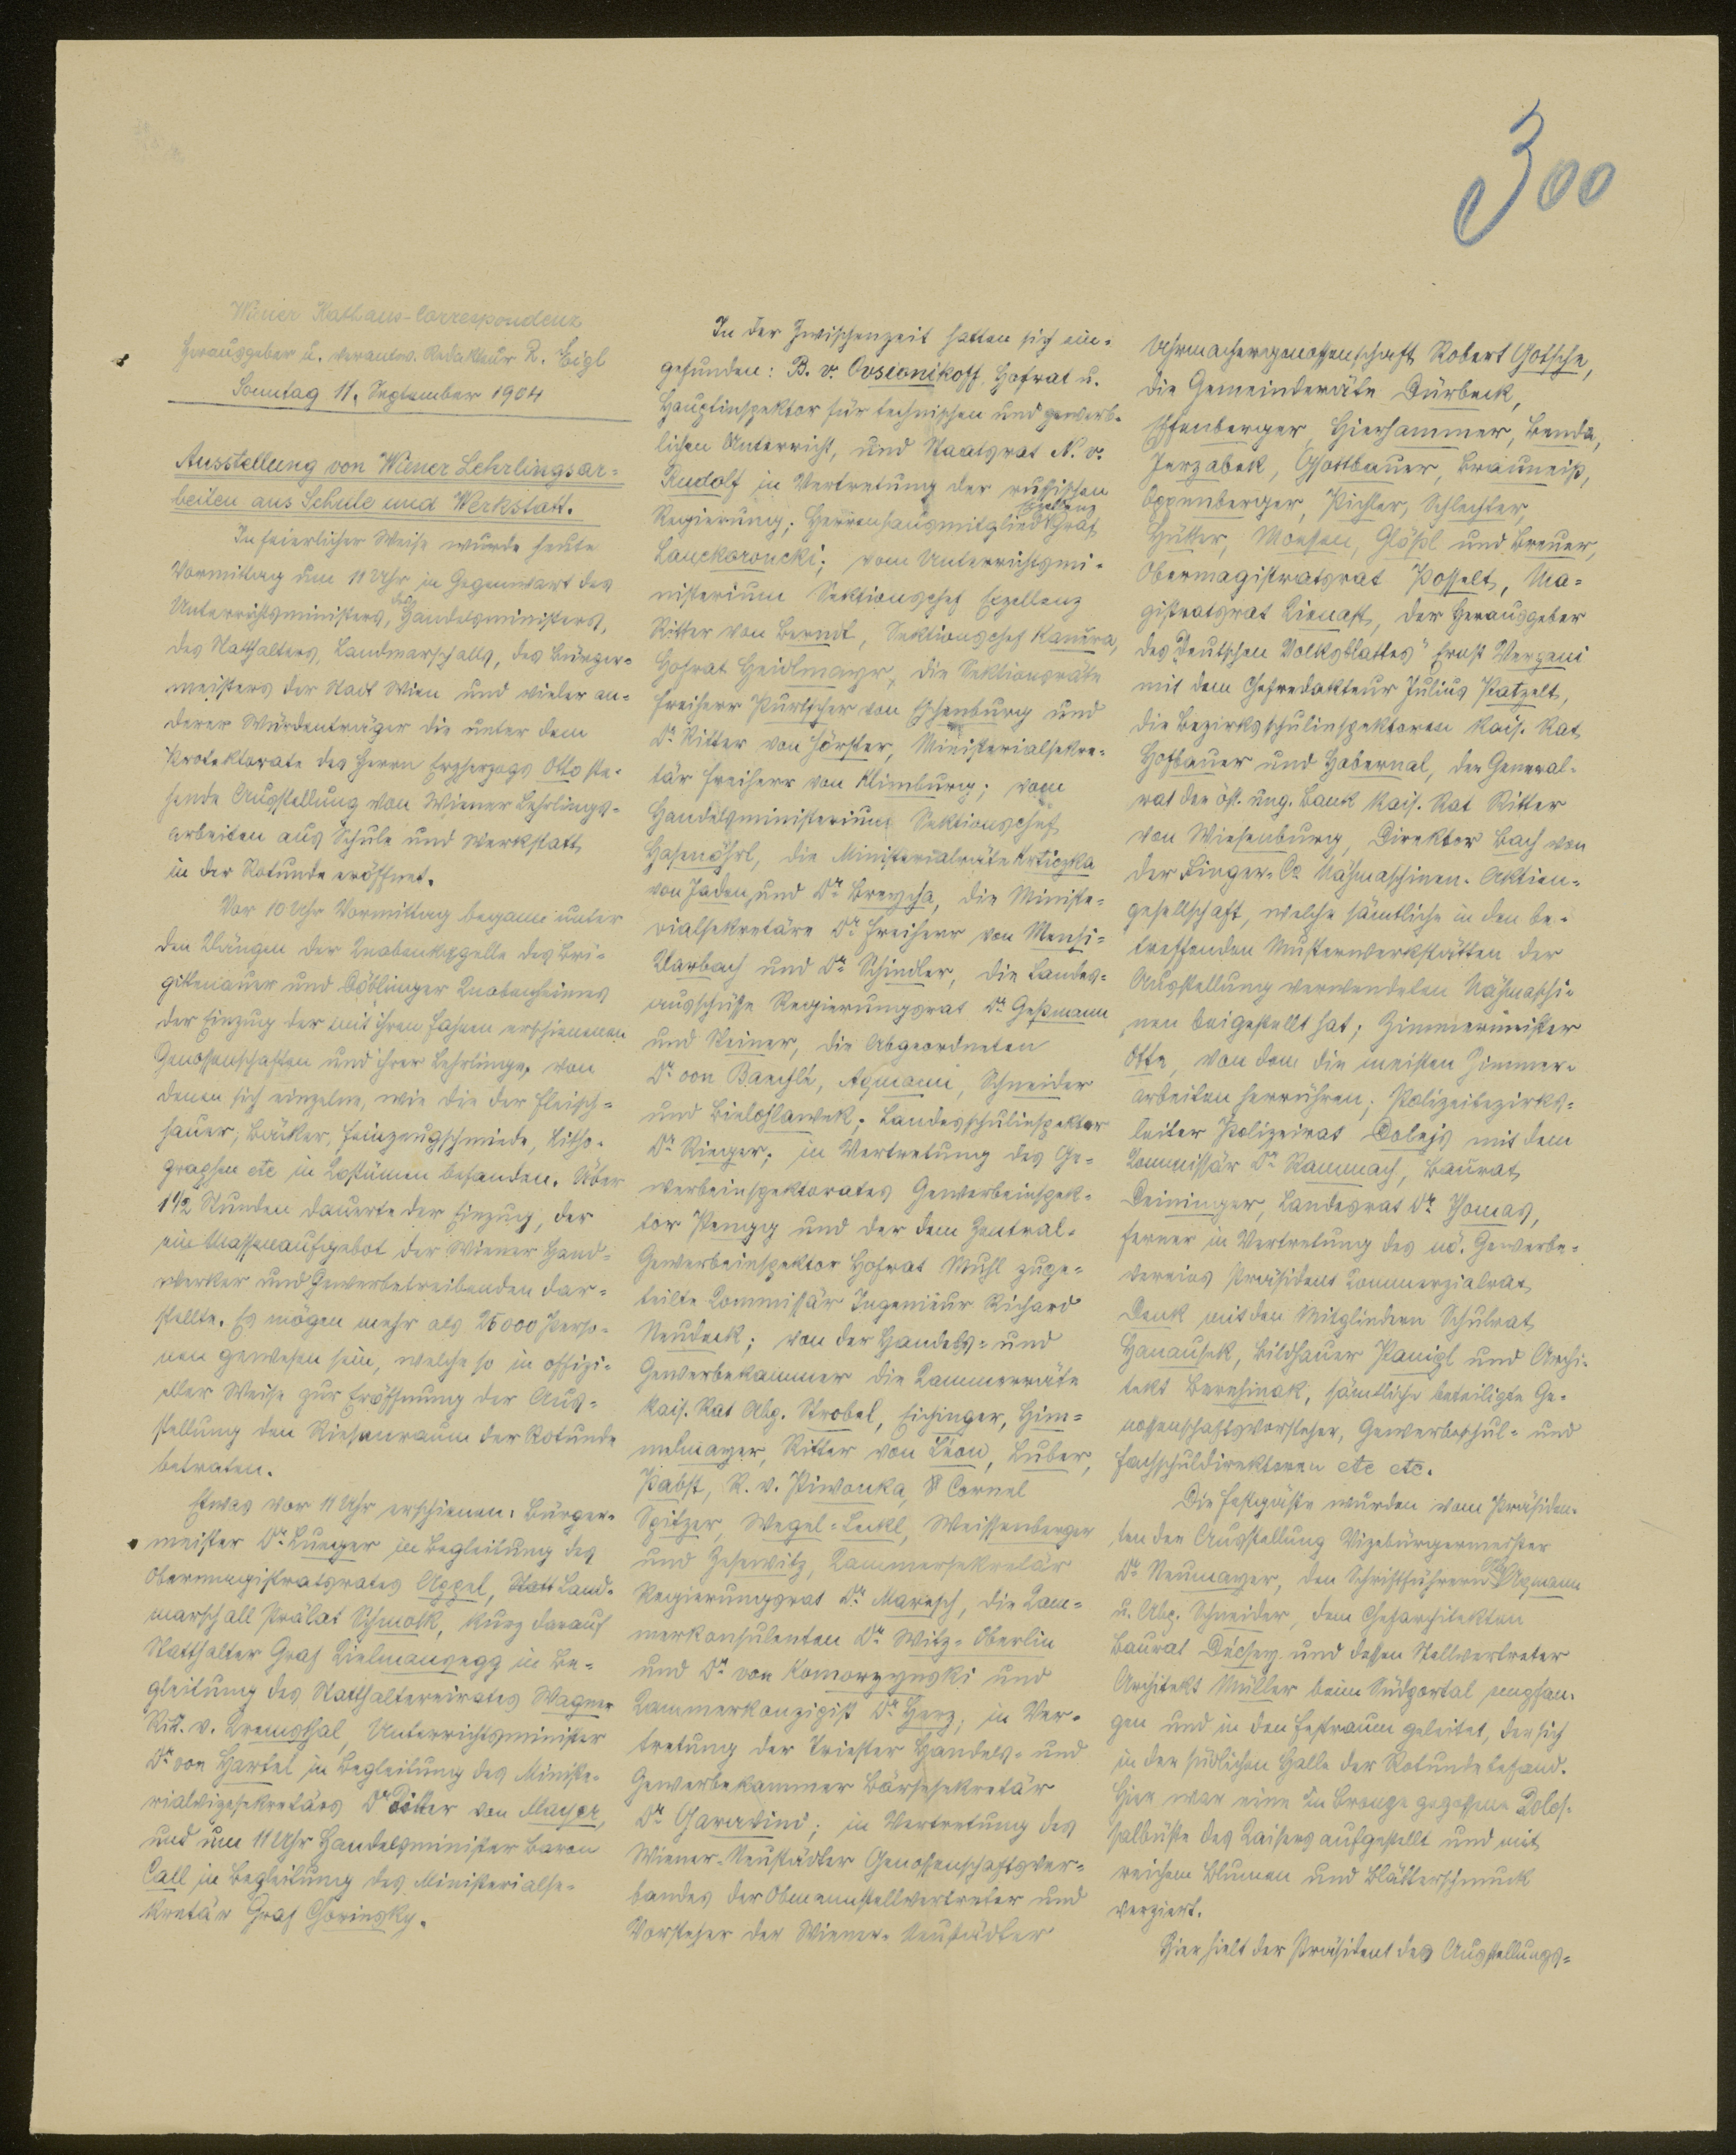 300
Wiener Rathaus-Correspondenz
Herausgeber u. verantw. Redakteur R. Eigl
Sonntag 11. September 1904
Ausstellung von Wiener Lehrlingsar-
beiten aus Schule und Werkstatt.
In feierlicher Weise wurde heute
Vormittag um 11 Uhr in Gegenwart des
Unterrichtsministers, des Handelsministers,
des Statthalters, Landmarschalls, des Bürger-
meisters der Stadt Wien und vieler an-
derer Würdenträger die unter dem
Protektorate des Herrn Erzherzogs Otto ste-
hende Ausstellung von Wiener Lehrlings-
arbeiten aus Schule und Werkstatt
in der Rotunde eröffnet.
Vor 10 Uhr Vormittag begann unter
den Klängen der Knabenkapelle des Bri-
gittenauer und Döblinger Knabenheimes
der Einzug der mit ihren Fahnen erschienenen
Genossenschaften und ihrer Lehrlinge, von
denen sich einzelne, wie die der Fleisch-
hauer, Bäcker, Feinzeugschmiede, Litho-
graphen etc in Kostümen befanden. Über
1 1/2 Stunden dauerte der Einzug, der
ein Massenaufgebot der Wiener Hand-
werker und Gewerbetreibenden dar-
stellte. Es mögen mehr als 25000 Perso-
nen gewesen sein, welche so in offizi-
eller Weise zur Eröffnung der Aus-
stellung den Riesenraum der Rotunde
betraten.
Etwas vor 11 Uhr erschienen: Bürger-
meister Dr. Lueger in Begleitung des
Obermagistratsrates Appel, Statt Land-
marschall Prälat Schmolk, kurz darauf
Statthalter Graf Kielmansegg in Be-
gleitung des Statthaltereirates Wagner
Rit. v. Kremsthal, Unterrichtsminister
Dr. von Hartel in Begleitung des Ministe-
rialvizesekretärs Dr. Ritter von Mayer,
und um 11 Uhr Handelsminister Baron
Call in Begleitung des Ministerialse-
kretär Graf Chorinsky.
In der Zwischenzeit hatten sich ein-
gefunden: B. v. Ovsionikoff, Hofrat u.
Hauptinspektor für technischen und gewerb-
lichen Unterricht, und Staatsrat N. v.
Rudolf in Vertretung der russischen
Regierung; Herrenhausmitglied Exzellenz Graf
Lanckoroncki; vom Unterrichtsmi-
nisterium Sektionschef Exzellenz
Ritter von Bernd, Sektionschef Kanera,
Hofrat Heidlmayr, die Sektionsräte
Freiherr Purtscher von Eschenburg und
Dr. Ritter von Förster, Ministerialsekre-
tär Freiherr von Klimburg; vom
Handelsministerium Sektionschef
Hasenöhrl, die Ministerialräte Krticzka
von Jaden und Dr. Breycha, die Ministe-
rialsekretäre Dr. Freiherr von Mensi-
Klarbach und Dr. Schindler, die Landes-
ausschüsse Regierungsrat Dr. Geßmann
und Steiner, die Abgeordneten
Dr. von Baechlé, Axmann, Schneider
und Bielohlawek; Landesschulinspektor
Dr. Rieger; in Vertretung des Ge-
werbeinspektorates Gewerbeinspek-
tor Pengg und der dem Zentral-
Gewerbeinspektor Hofrat Muhl zuge-
teilte Kommissär Ingenieur Richard
Neudeck; von der Handels- und
Gewerbekammer die Kammerräte
kais. Rat Abg. Strobel, Eichinger, Him-
melmayer, Ritter von Léon, Luber,
Pabst, R. v. Piwonka, Cornel
Spitzer, Wegel-Leckl, Weissenberger
und Zesewitz, Kammersekretär
Regierungsrat Dr. Maresch, die Kam-
merkonsulenten Dr. Witz-Oberlin
und Dr. von Komorzynski und
Kammerkonzipist Dr. Herz; in Ver-
tretung der Triester Handels- und
Gewerbekammer Börsesekretär
Dr. Garavini; in Vertretung des
Wiener-Neustädter Genossenschaftsver-
bandes der Obmannstellvertreter und
Vorsteher der Wiener-Neustädter
Uhrmachergenossenschaft Robert Gotsche,
die Gemeinderäte Dürbeck,
Effenberger, Hierhammer, Benda,
Jerzabek, Gsottbauer, Brauneiß,
Oppenberger, Pichler, Schlechter,
Hütter, Moessen, Glößl und Breuer,
Obermagistratsrat Posselt, Ma-
gistratsrat Lienast, der Herausgeber
des "Deutschen Volksblattes" Ernst Vergani
mit dem Chefredakteur Julius Patzelt,
die Bezirksschulinspektoren kais. Rat
Hofbauer und Habernal, der General-
rat der öst. ung. Bank kais. Rat Ritter
von Wiesenburg, Direktor Bach von
der Singer-Co. Nähmaschinen-Aktien-
gesellschaft, welche sämtliche in den be-
treffenden Musterwerkstätten der
Ausstellung verwendeten Nähmaschi-
nen beigestellt hat; Zimmermeister
Otte, von dem die meisten Zimmer-
arbeiten herrühren; Polizeibezirks-
leiter Polizeirat Dobejs mit dem
Kommissär Dr. Rammach, Baurat
Deininger, Landesrat Dr. Thomas,
ferner in Vertretung des nö. Gewerbe-
vereins Präsident Kommerzialrat
Denk mit den Mitgliedern Schulrat
Hanausek, Bildhauer Panigl und Archi-
tekt Bereschinak, sämtliche beteiligte Ge-
nossenschaftsvorsteher, Gewerbeschul- und
Fachschuldirektoren etc etc.
Die Festgäste wurden vom Präsiden-
ten der Ausstellung Vizebürgermeister
Dr. Neumayer, den Schriftführern Abg. Axmann
u. Abg. Schneider, dem Chefarchitekten
Baurat Décsey und dessen Stellvertreter
Architekt Müller beim Südportal empfan-
gen und in den Festraum geleitet, der sich
in der südlichen Halle der Rotunde befand.
Hier war eine in Bronze gegossene Kolos-
salbüste des Kaisers aufgestellt und mit
reichem Blumen und Blätterschmuck
verziert.
Hier hielt der Präsident des Ausstellungs-